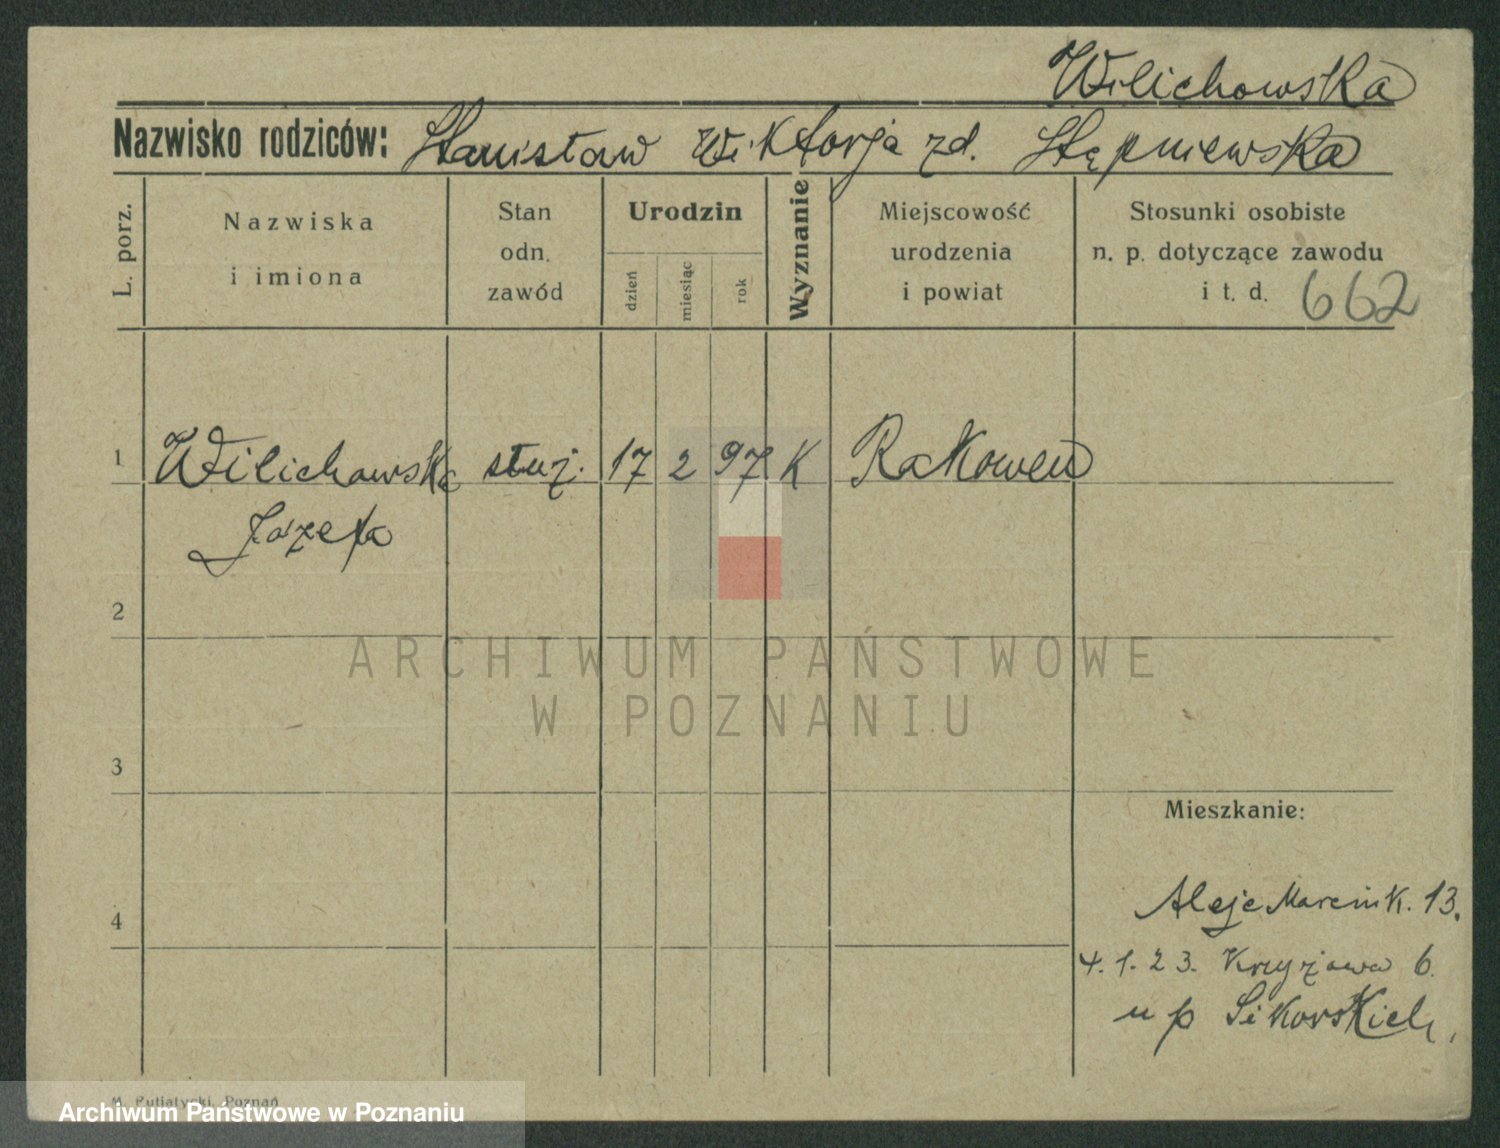 Wilichowska
Nazwisko rodziców: Stanisław Wiktorja zd. Stępniewska
L. porz.
Nazwiska
i imiona
Stan
odn.
zawód
Urodzin
dzień
miesiąc
rok
Wyznanie
Miejscowość
urodzenia
i powiat
Stosunki osobiste
n. p. dotyczące zawodu
i t. d. 662
1 Wilichowska służ. 17 2 97 K
Józefa
2
ARCHIWUM PAŃSTWOWE
W POZNANIU
3
Mieszkanie:
4
Aleje Marcink. 13.
4.1.23. Krzyżowa 6.
u p Sikorskich,
M. Putiatycki, Poznań
Archiwum Państwowe w Poznaniu